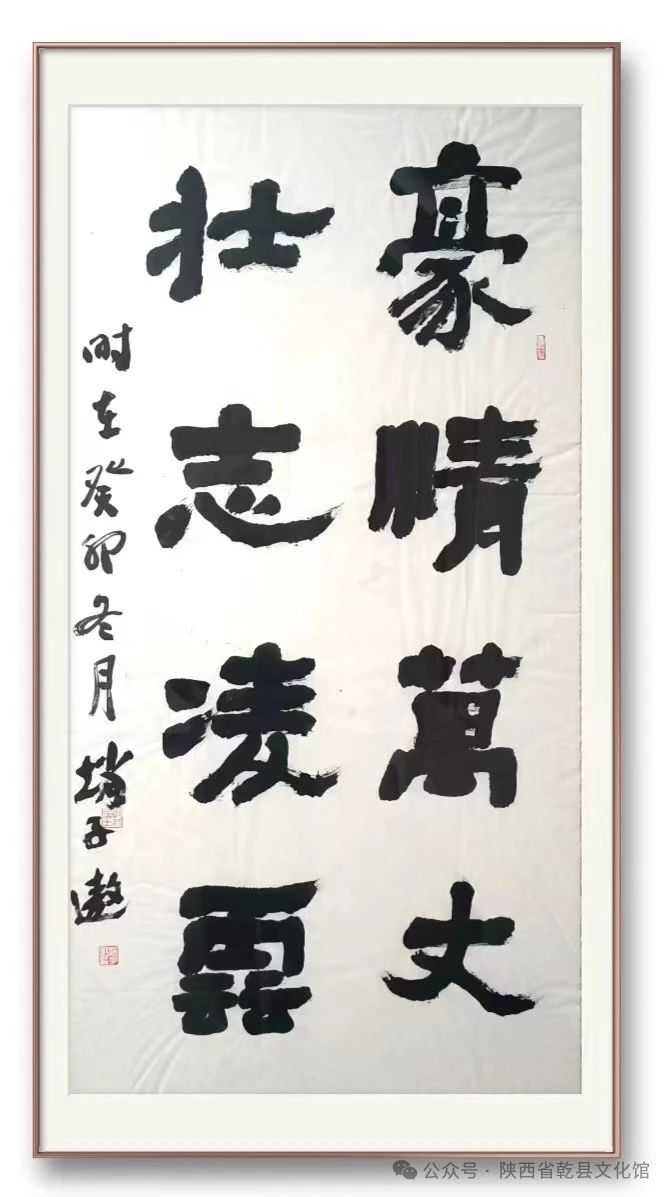 豪情萬丈
壯志凌雲
時在癸卯冬月趙子遨
公众号·陕西省乾县文化馆